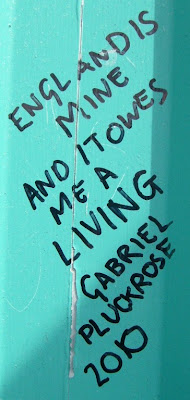 ENGLAND IS
MINE
AND IT OWES
ME A
LIVING
GABRIEL
PLUCKROSE
2010